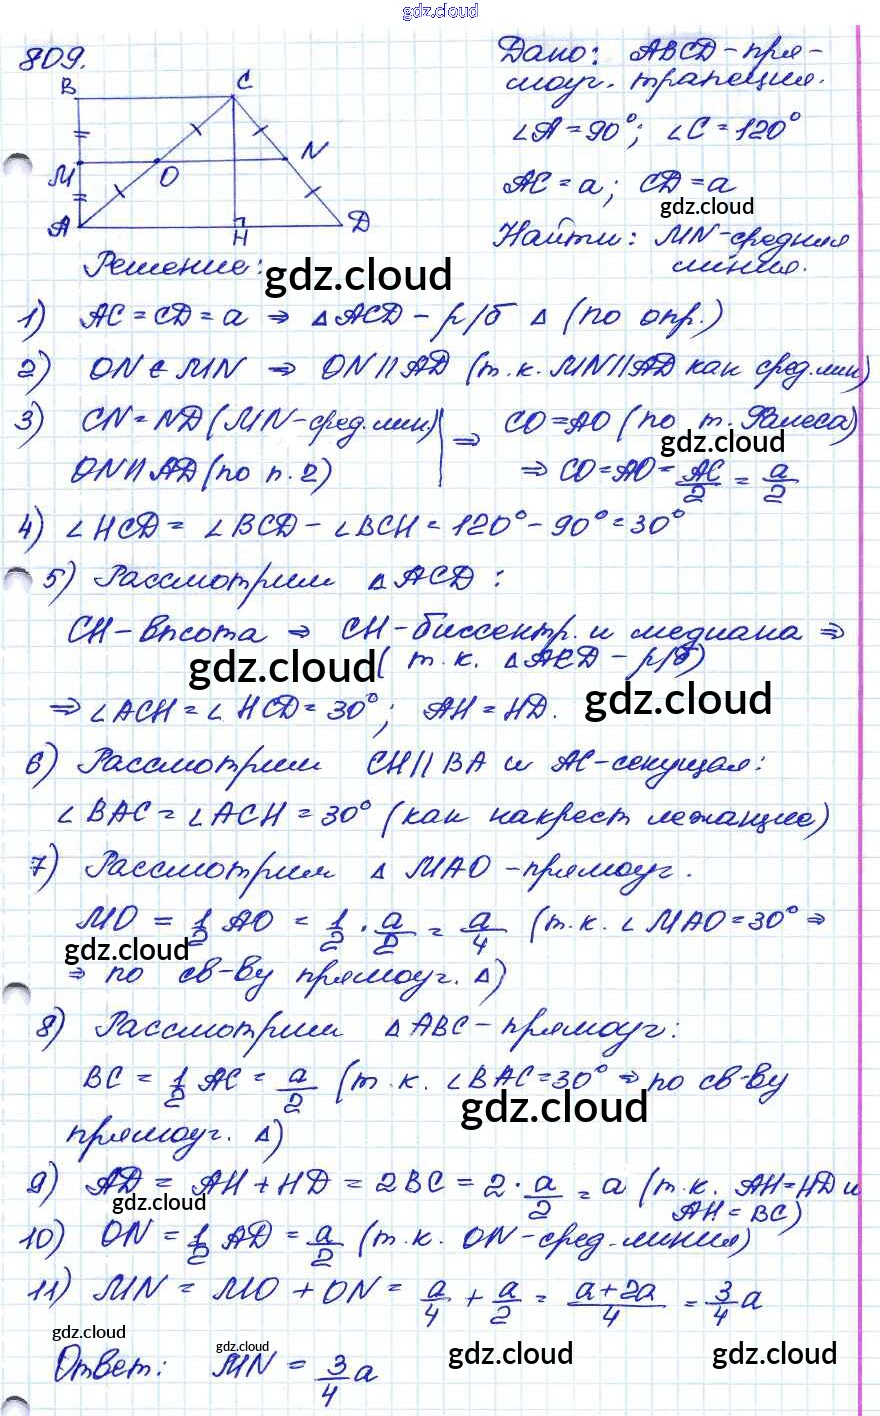 gdz.cloud
809.
B C
M O N
A H D
Дано: ABCD - пря-
моуг. трапеция.
∠A = 90°; ∠C = 120°
AC = a; CD = a
gdz.cloud
Найти: MN - средняя
линия.
Решение:
gdz.cloud
1) AC = CD = a ⇒ △ACD - р/б △ (по опр.)
2) ON ∈ MN ⇒ ON || AD (т.к. MN || AD как сред. лин)
3) CN = ND (MN - сред. лин.) ⇒ CO = AO (по т. Фалеса)
gdz.cloud
ON || AD (по п. 2) ⇒ CO = AO = AC/2 = a/2
4) ∠HCD = ∠BCD - ∠BCH = 120° - 90° = 30°
5) Рассмотрим △ACD:
CH - высота ⇒ CH - биссектр. и медиана ⇒
gdz.cloud
(т.к. △ACD - р/б)
gdz.cloud
⇒ ∠ACH = ∠HCD = 30°; AH = HD.
6) Рассмотрим CH || BA и AC - секущая:
∠BAC = ∠ACH = 30° (как накрест лежащие)
7) Рассмотрим △ MAO - прямоуг.
MO = 1/2 AO = 1/2 · a/2 = a/4 (т.к. ∠MAO = 30° ⇒
gdz.cloud
⇒ по св-ву прямоуг. △)
8) Рассмотрим △ABC - прямоуг:
BC = 1/2 AC = a/2 (т.к. ∠BAC = 30° ⇒ по св-ву
gdz.cloud
прямоуг. △)
9) AD = AH + HD = 2BC = 2 · a/2 = a (т.к. AH = HD и
gdz.cloud
AH = BC)
10) ON = 1/2 AD = a/2 (т.к. ON - сред. линия)
11) MN = MO + ON = a/4 + a/2 = a+2a/4 = 3/4 a
gdz.cloud
gdz.cloud
Ответ: MN = 3/4 a
gdz.cloud
gdz.cloud